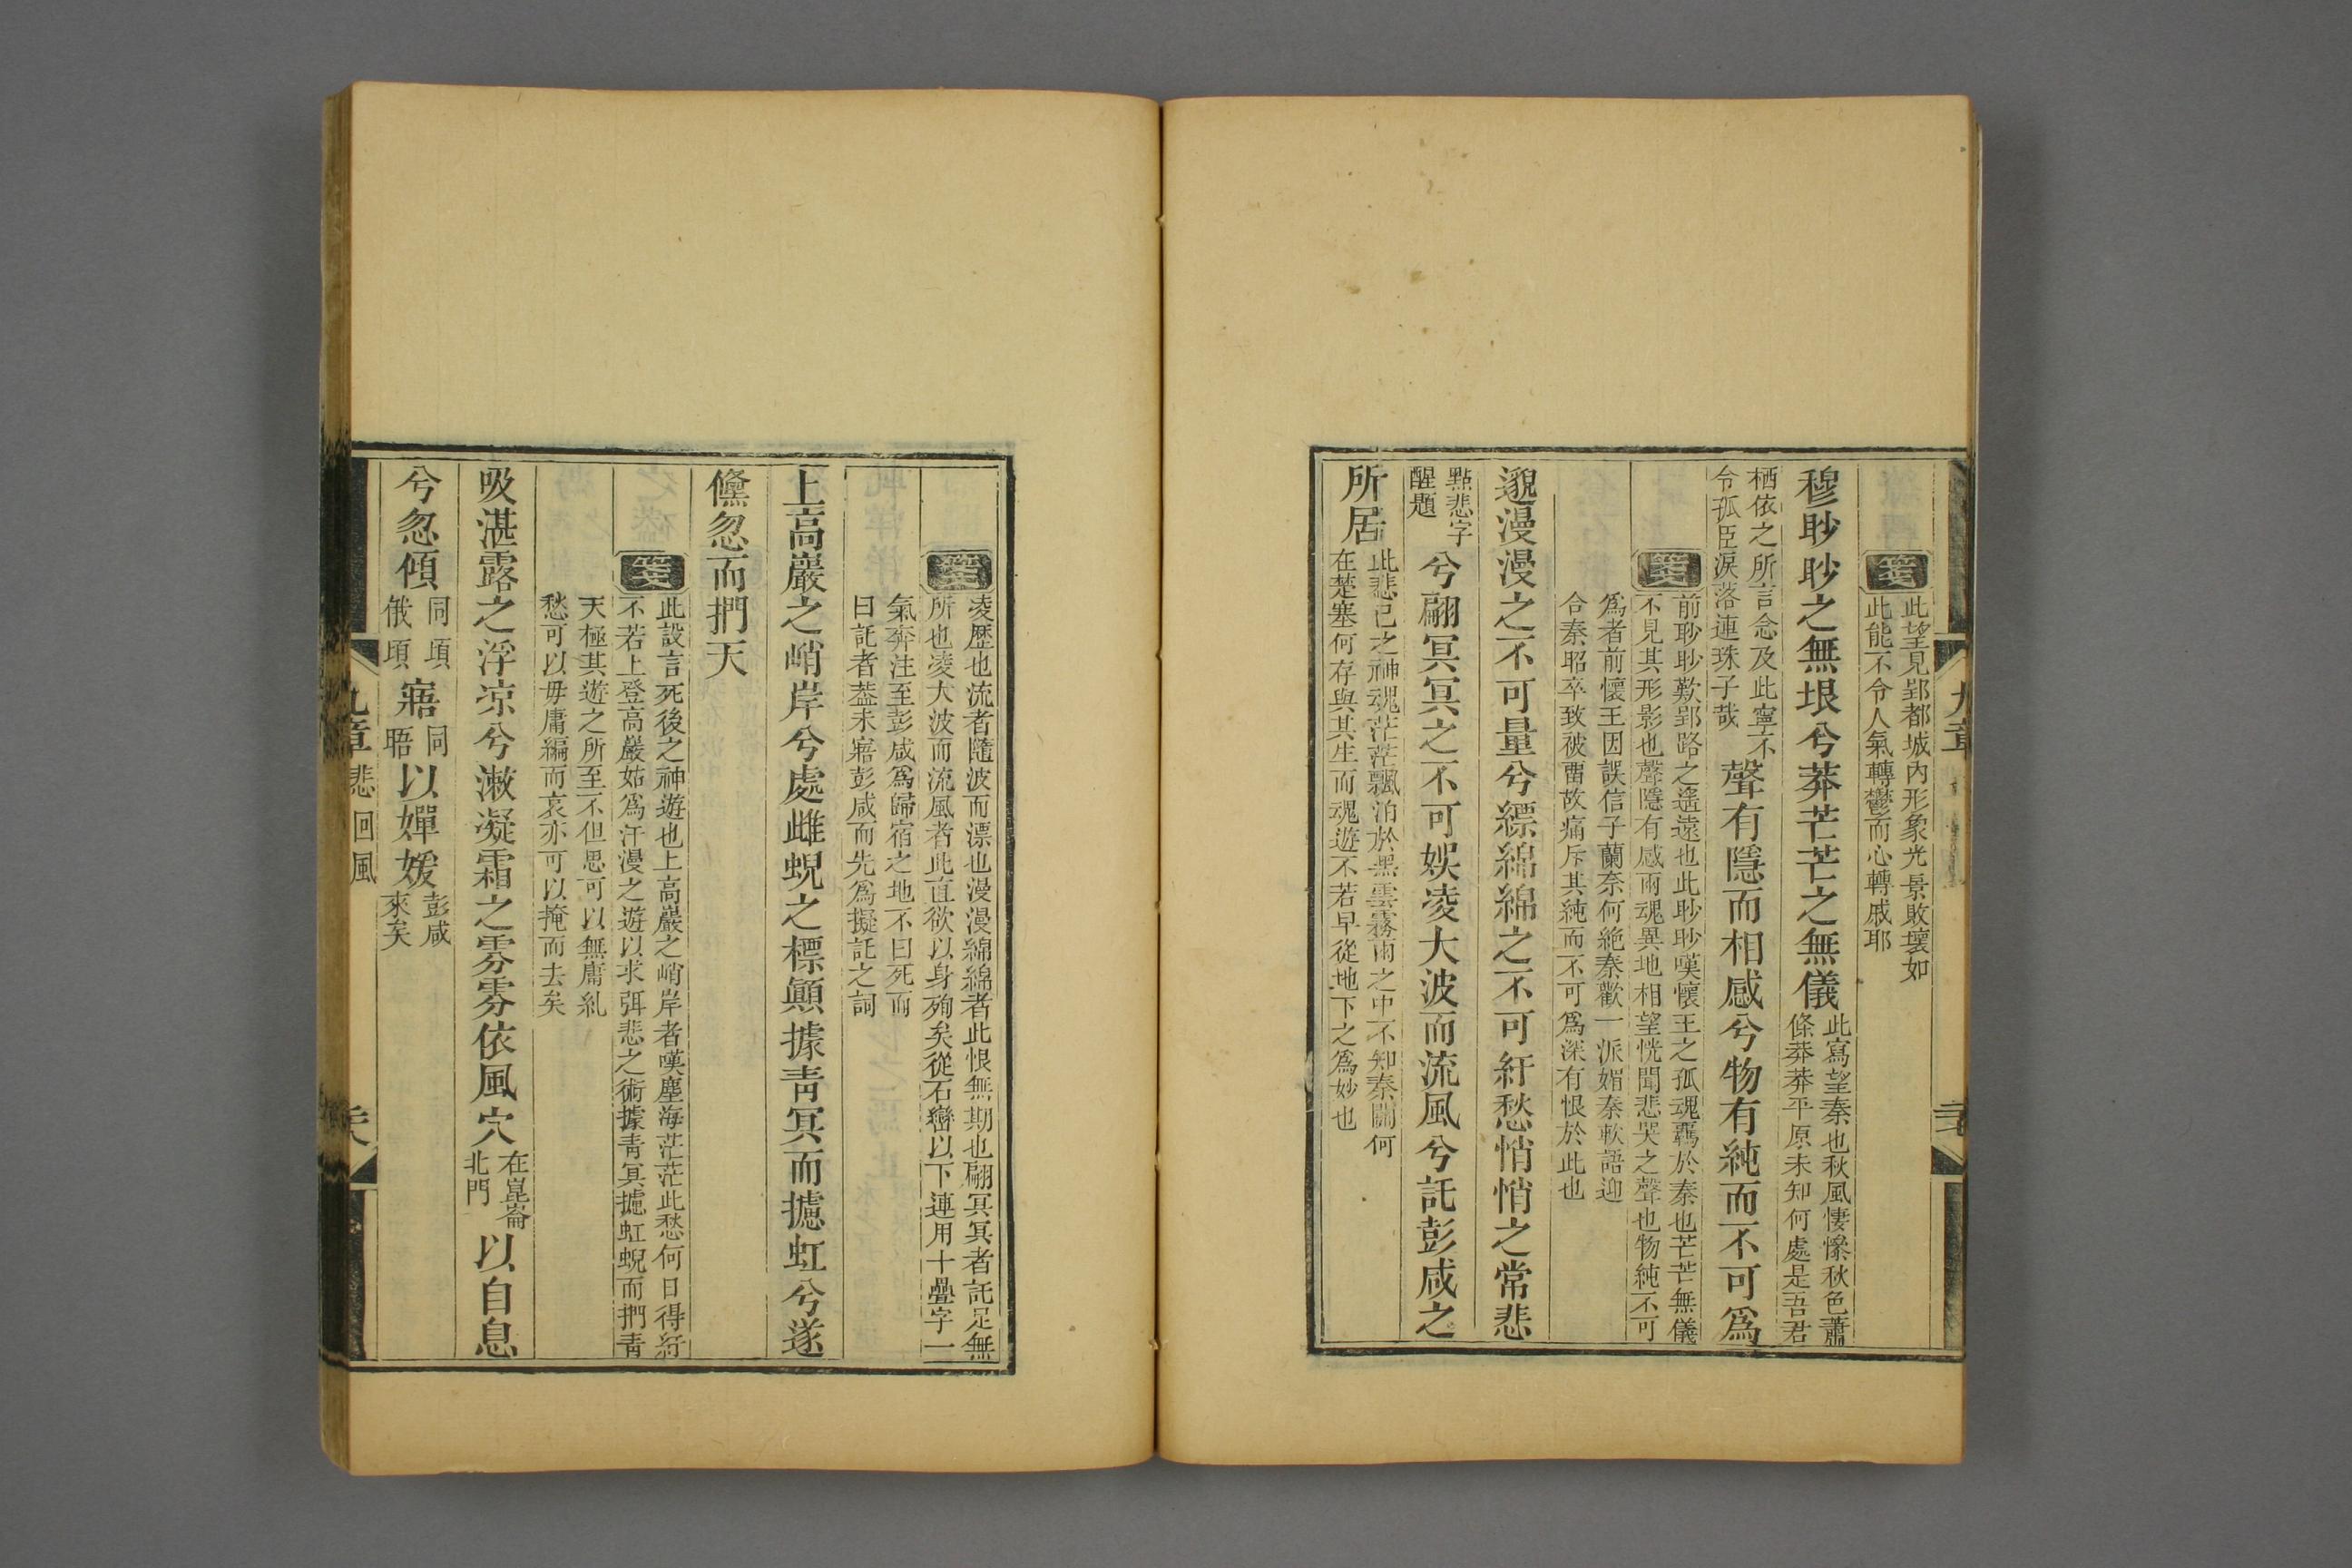 箋
此望見郢都城內形象光景敗壞如
此能不令人氣轉鬱而心轉戚耶
穆眇眇之無垠兮莽芒芒之無儀
此寫望秦也秋風悽慘秋色蕭
條莽莽平原未知何處是吾君
栖依之所言念及此寧不
令孤臣淚落連珠子哉
聲有隱而相感兮物有純而不可爲
箋
前眇眇歎郢路之遙遠也此眇眇嘆懷王之孤魂羈於秦也芒芒無儀
不見其形影也聲隱有感兩魂異地相望恍聞悲哭之聲也物純不可
爲者前懷王因誤信子蘭奈何絶秦歡一派媚秦軟語迎
合秦昭卒致被畱故痛斥其純而不可爲深有恨於此也
邈漫漫之不可量兮縹綿綿之不可紆愁悄悄之常悲
點悲字
醒題
兮翩冥冥之不可娛凌大波而流風兮託彭咸之
所居
此悲已之神魂茫茫飄泊於黑雲霧雨之中不知秦關何
在楚塞何存與其生而魂遊不若早從地下之爲妙也
九章
箋
凌歷也流者隨波而漂也漫漫綿綿者此恨無期也翩冥冥者託足無
所也凌大波而流風者此直欲以身殉矣從石巒以下連用十疊字一
氣奔注至彭咸爲歸宿之地不曰死而
曰託者葢未寤彭咸而先爲擬託之詞
上高巖之峭岸兮處雌蜺之標顚據靑冥而攄虹兮遂
儵忽而捫天
箋
此設言死後之神遊也上高巖之峭岸者嘆塵海茫茫此愁何日得紆
不若上登高巖姑爲汗漫之遊以求弭悲之術據靑冥攄虹蜺而捫靑
天極其遊之所至不但思可以無庸糺
愁可以毋庸編而哀亦可以掩而去矣
吸湛露之浮凉兮漱凝霜之雰雰依風穴
在崑崙
北門
以自息
兮忽傾
同頃
俄頃
寤
同
晤
以嬋媛
彭咸
來矣
九章
悲回風